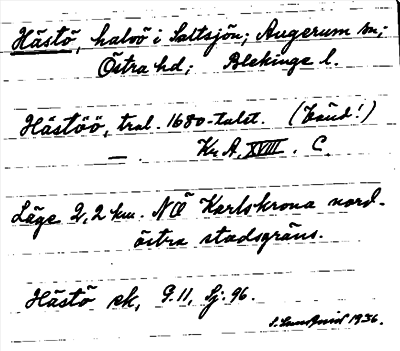 Hästö, halvö i Saltsjön; Augerum sn;
Östra hd; Blekinge l.
Hästöö, trol. 1680-talet. (Vänd!)
— Kr.A. XVIII. C.
Läge 2,2 km. NÖ Karlskrona nord-
östra stadsgräns.
Hästö ek, G.11, Sj: 96.
S. Lundqvist 1936.